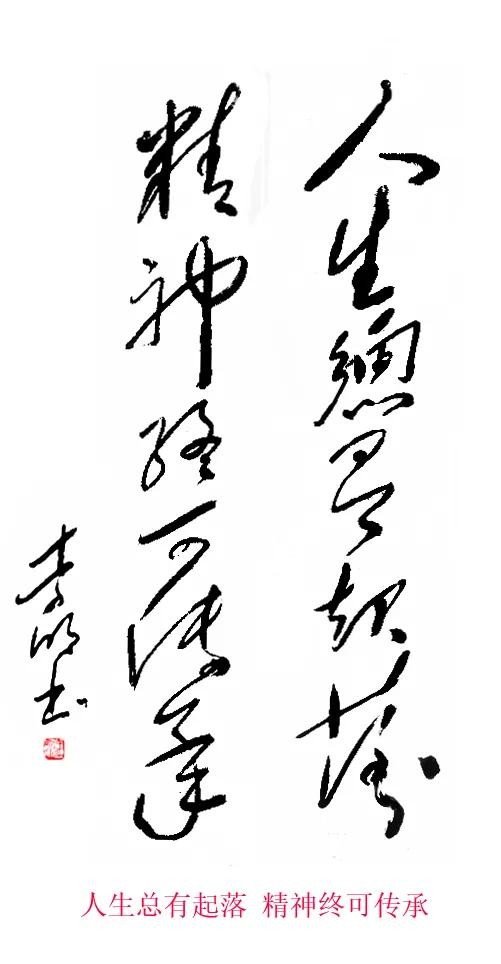 人生總是起落
精神终可传承
李明书
人生总有起落 精神终可传承